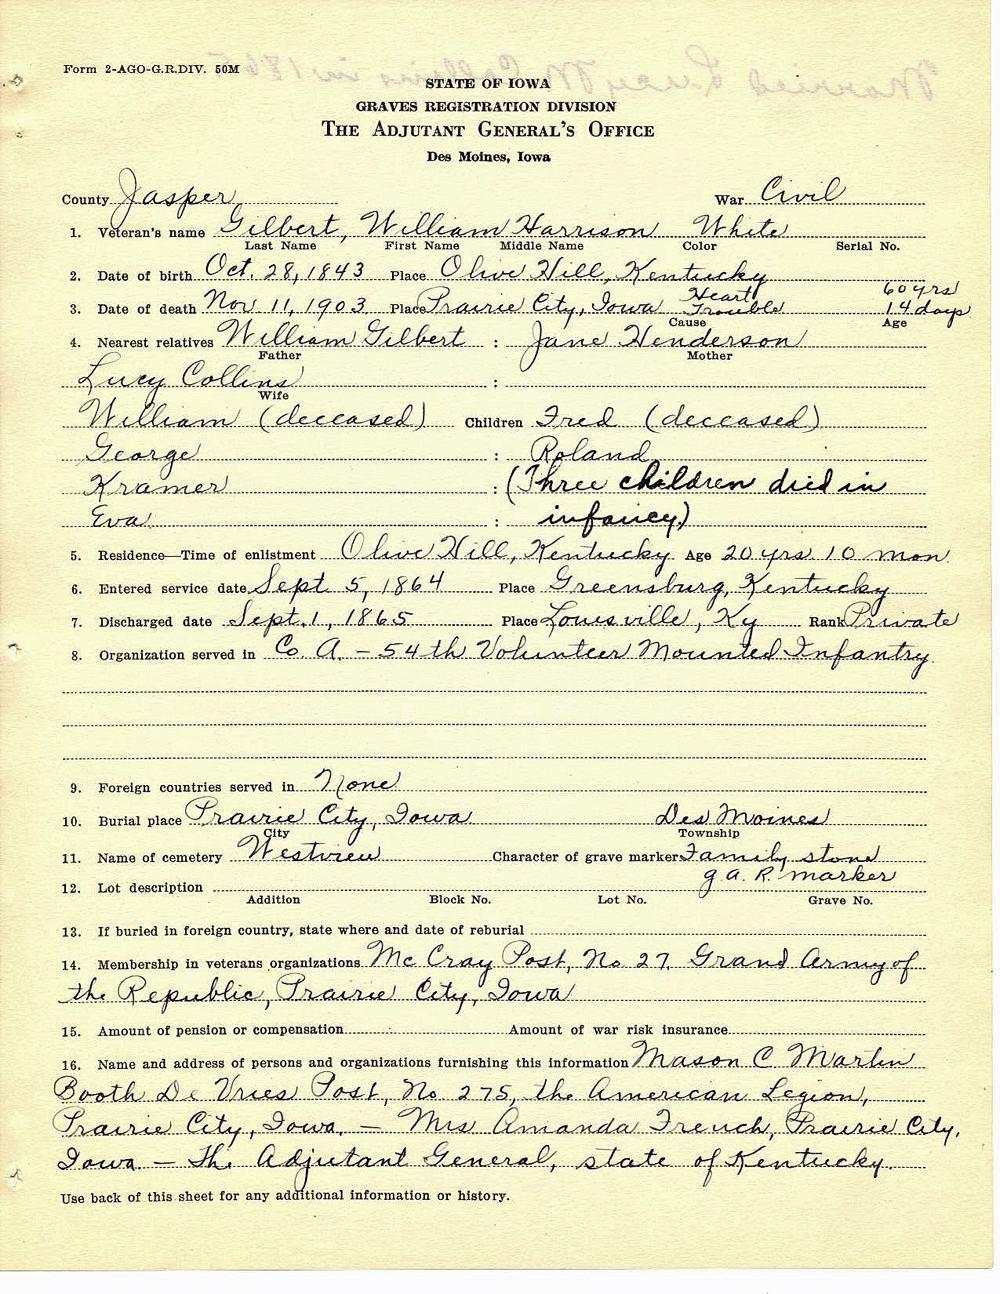 Form 2-AGO-G.R.DIV. 50M
Married Lucy M Collins in 186
STATE OF IOWA
GRAVES REGISTRATION DIVISION
THE ADJUTANT GENERAL'S OFFICE
Des Moines, Iowa
County Jasper War Civil
1. Veteran's name Gilbert, William Harrison White
Last Name First Name Middle Name Color Serial No.
2. Date of birth Oct. 28, 1843 Place Olive Hill, Kentucky
3. Date of death Nov 11, 1903 Place Prairie City, Iowa Heart Trouble 60 yrs 14 days
Cause Age
4. Nearest relatives William Gilbert : Jane Henderson
Father Mother
Lucy Collins :
Wife
William (deceased) Children Fred (deceased)
George : Roland
Kramer : (Three children died in
Eva : infancy)
5. Residence—Time of enlistment Olive Hill, Kentucky Age 20 yrs 10 mon
6. Entered service date Sept. 5, 1864 Place Greensburg, Kentucky
7. Discharged date Sept. 1, 1865 Place Louisville, Ky Rank Private
8. Organization served in Co. A. – 54th Volunteer Mounted Infantry
9. Foreign countries served in None
10. Burial place Prairie City, Iowa Des Moines
City Township
11. Name of cemetery Westview Character of grave marker Family stone
G. A. R. marker
12. Lot description
Addition Block No. Lot No. Grave No.
13. If buried in foreign country, state where and date of reburial
14. Membership in veterans organizations McCray Post, No 27, Grand Army of
the Republic, Prairie City, Iowa
15. Amount of pension or compensation Amount of war risk insurance
16. Name and address of persons and organizations furnishing this information Mason C Martin
Booth De Vries Post, No. 275, the American Legion,
Prairie City, Iowa. – Mrs Amanda French, Prairie City,
Iowa – The Adjutant General, state of Kentucky.
Use back of this sheet for any additional information or history.